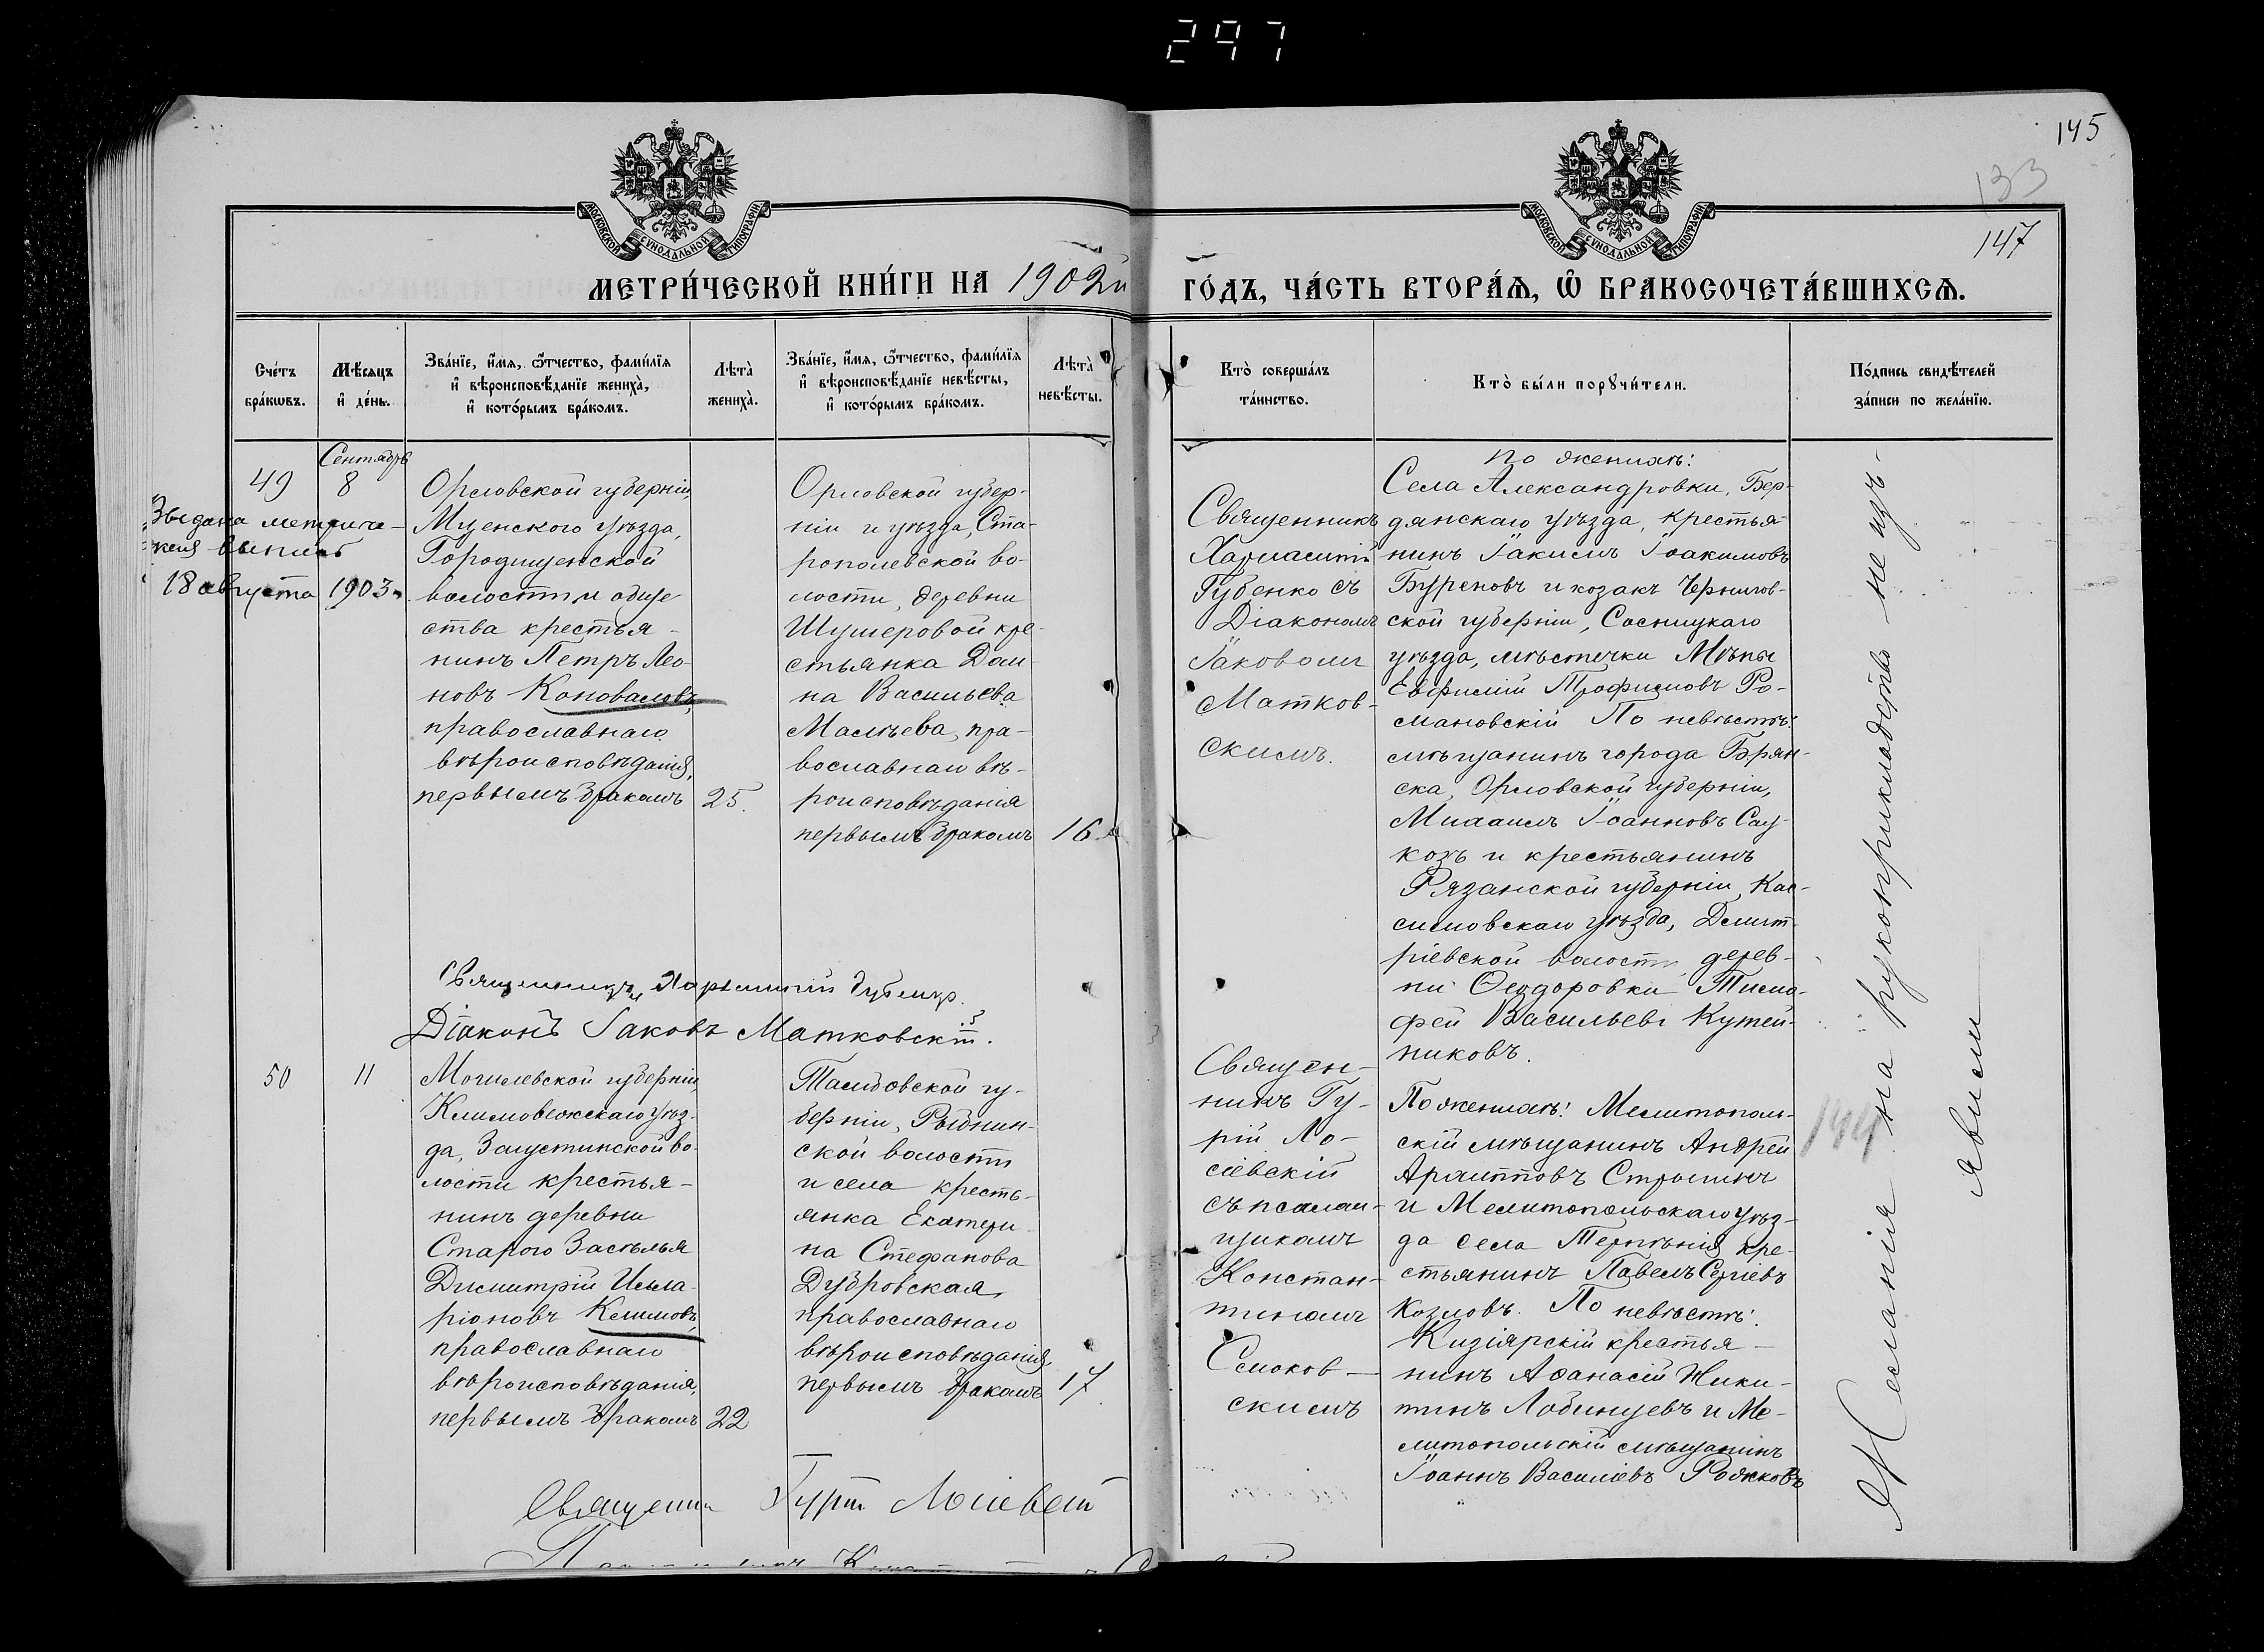 297
145
133
147
МОСКОВСКОЙ СУНОДАЛЬНОЙ ТИПОГРАФІИ
МОСКОВСКОЙ СУНОДАЛЬНОЙ ТИПОГРАФІИ
МЕТРИ́ЧЕСКОЙ КНИ́ГИ НА 1902й
ГО́ДЪ, ЧА́СТЬ ВТОРА́Ѧ, Ѽ БРАКОСОЧЕТА́ВШИХСѦ.
Сче́тъ
бра́кѡвъ.
Мѣ́сѧцъ
и҆ де́нь.
Зва́нїе, и҆́мѧ, ѻ҆́тчество, фами́лїѧ
и҆ вѣроисповѣ́данїе жениха̀,
и҆ кото́рымъ бра́комъ.
Лѣта̀
жениха̀.
Зва́нїе, и҆́мѧ, ѻ҆́тчество, фами́лїѧ
и҆ вѣроисповѣ́данїе невѣ́сты,
и҆ кото́рымъ бра́комъ.
Лѣта̀
невѣ́сты.
Кто̀ соверша́лъ
та́инство.
Кто̀ бы́ли порꙋчи́тели.
По́дпись свидѣ́телей
за́писи по жела́нїю.
49
Сентябрь
8
Выдана метриче-
18 августа 1903 г.
Орловской губерніи,
Мценскаго уѣзда,
Городищенской
волости и обще
ства крестья-
нинъ Петръ Лео-
новъ Коноваловъ,
православнаго
вѣроисповѣданія,
первымъ бракомъ
25.
Орловской губер-
ніи и уѣзда, Ста-
рополевской во-
лости, деревни
Шумеровой кре-
стьянка Дом-
на Васильева
Малѣева, пра-
вославнаго вѣ-
роисповѣданія
первымъ бракомъ
16.
Священникъ
Харлампій
Губенко съ
Діакономъ
Іаковомъ
Матков-
скимъ.
По женихѣ:
Села Александровки, Бер-
дянскаго уѣзда, крестья-
нинъ Іакимъ Іоакимовъ
Буреновъ и козакъ Чернигов-
ской губерніи, Сосницкаго
уѣзда, мѣстечки Мѣны
Евфимій Трофимовъ Ро-
мановскій По невѣстѣ:
мѣщанинъ города Брян-
ска, Орловской губерніи,
Іоанновъ Сау-
ковъ и крестьянинъ
Рязанской губерніи, Кас-
симовскаго уѣзда, Дмит-
ріевской волости, дерев-
ни Ѳеодоровки Тимо-
фей Васильевъ Кутей-
никовъ.
Священникъ Харлампій Губенко.
Діаконъ Іаковъ Матковскій.
50
11
Могилевской губерніи,
Климовескаго уѣз-
да, Загустинской во-
лости крестья-
нинъ деревни
Старого Заселья
Димитрій Илла-
ріоновъ Климовъ,
православнаго
вѣроисповѣданія,
первымъ бракомъ
22
Тамбовской гу-
берніи, Рыбнин-
ской волости
и села кресть-
янка Екатери-
на Стефанова
Дубровская,
православнаго
вѣроисповѣданія,
первымъ бракомъ
17
Священ-
никъ Гу-
рій Ло-
сіевскій
съ псалом-
щикомъ
Констан-
тиномъ
Смоков-
скимъ
По женихѣ: Мелитополь-
скій мѣщанинъ Андрей
и Мелитопольскаго уѣз-
да села Терпѣнія кре-
стьянинъ Павелъ Сергіевъ
Козловъ. По невѣстѣ:
Кизіярскій крестья-
нинъ Аѳанасій Ники-
тинъ Лобинцевъ и Ме-
литопольскій мѣщанинъ
Іоаннъ Василіевъ Рожковъ
Желанія на рукоприкладство не изъ-
явили